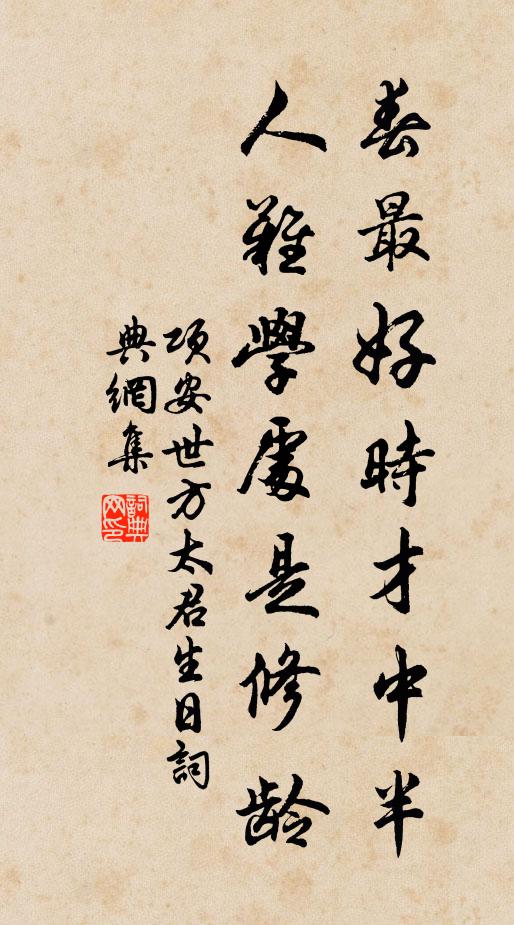 春最好時才中半
人難學處是修龄
項安世方太君生日詞
典網集
詞典
网印